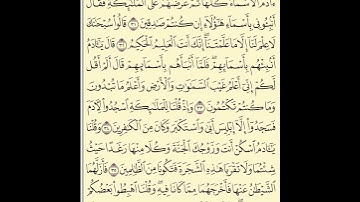 ءَادَمَ ٱلْأَسْمَآءَ كُلَّهَا ثُمَّ عَرَضَهُمْ عَلَى ٱلْمَلَٰٓئِكَةِ فَقَالَ
أَنۢبِـُٔونِى بِأَسْمَآءِ هَٰٓؤُلَآءِ إِن كُنتُمْ صَٰدِقِينَ ٣١ قَالُوا۟ سُبْحَٰنَكَ
لَا عِلْمَ لَنَآ إِلَّا مَا عَلَّمْتَنَآ إِنَّكَ أَنتَ ٱلْعَلِيمُ ٱلْحَكِيمُ ٣٢ قَالَ يَٰٓـَٔادَمُ
أَنۢبِئْهُم بِأَسْمَآئِهِمْ فَلَمَّآ أَنۢبَأَهُم بِأَسْمَآئِهِمْ قَالَ أَلَمْ أَقُل
لَّكُمْ إِنِّىٓ أَعْلَمُ غَيْبَ ٱلسَّمَٰوَٰتِ وَٱلْأَرْضِ وَأَعْلَمُ مَا تُبْدُونَ
وَمَا كُنتُمْ تَكْتُمُونَ ٣٣ وَإِذْ قُلْنَا لِلْمَلَٰٓئِكَةِ ٱسْجُدُوا۟ لِـَٔادَمَ
فَسَجَدُوٓا۟ إِلَّآ إِبْلِيسَ أَبَىٰ وَٱسْتَكْبَرَ وَكَانَ مِنَ ٱلْكَٰفِرِينَ ٣٤ وَقُلْنَا
يَٰٓـَٔادَمُ ٱسْكُنْ أَنتَ وَزَوْجُكَ ٱلْجَنَّةَ وَكُلَا مِنْهَا رَغَدًا حَيْثُ
شِئْتُمَا وَلَا تَقْرَبَا هَٰذِهِ ٱلشَّجَرَةَ فَتَكُونَا مِنَ ٱلظَّٰلِمِينَ ٣٥ فَأَزَلَّهُمَا
ٱلشَّيْطَٰنُ عَنْهَا فَأَخْرَجَهُمَا مِمَّا كَانَا فِيهِ وَقُلْنَا ٱهْبِطُوا۟ بَعْضُكُمْ